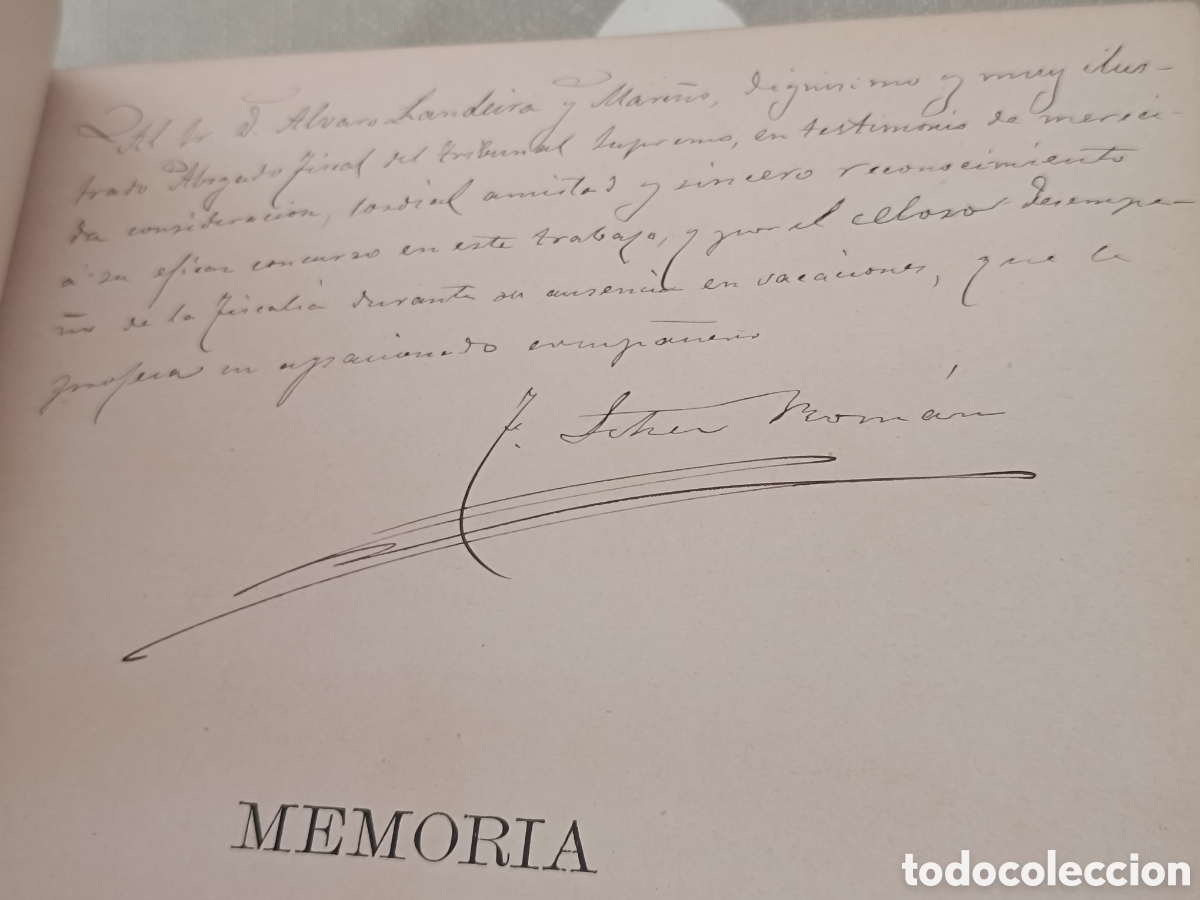 Al Sr. D. Alvaro Landeira y Mariño, dignisimo y muy ilus-
trado Abogado fiscal del Tribunal Supremo, en testimonio de mereci-
da consideracion, cordial amistad y sincero reconocimiento
á su eficaz concurso en este trabajo, y por el celoso desempe-
ño de la Fiscalia durante su ausencia en vacaciones, que le
profesa su apasionado compañero
F. Román
MEMORIA
todocoleccion